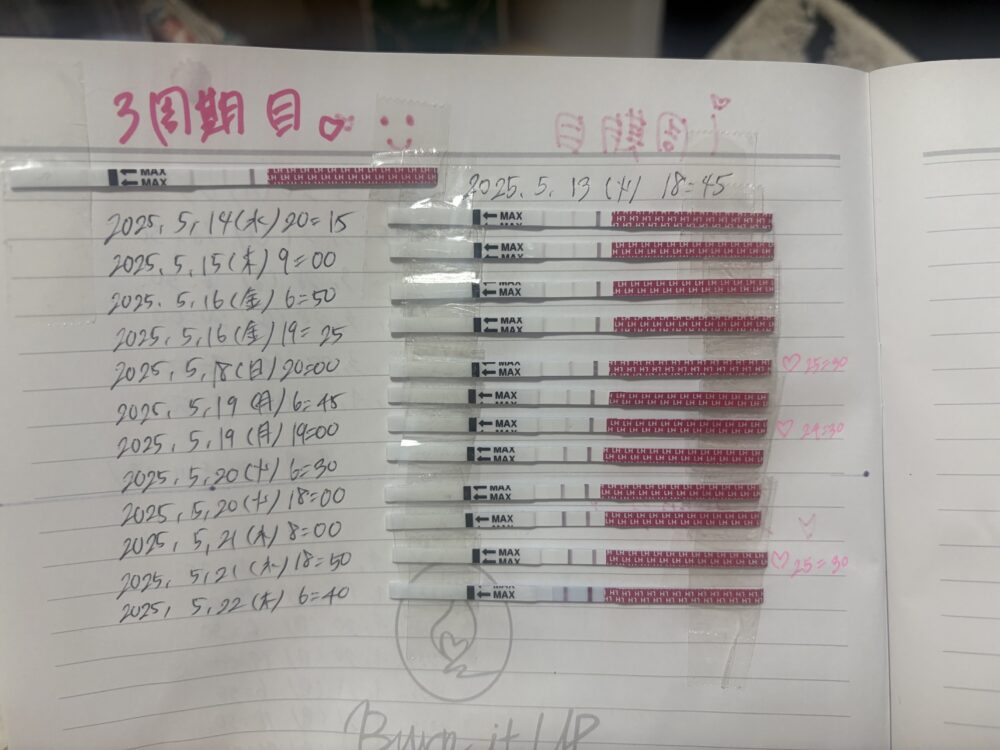 3周期目
2025. 5. 13 (火) 18=45
2025. 5. 14 (水) 20=15
2025. 5. 15 (木) 9=00
2025. 5. 16 (金) 6=50
2025. 5. 16 (金) 19=25
2025. 5. 18 (日) 20=00
♡ 25=30
2025. 5. 19 (月) 6=45
2025. 5. 19 (月) 19=00
♡ 24=30
2025. 5. 20 (火) 6=30
2025. 5. 20 (火) 18=00
2025. 5. 21 (水) 8=00
2025. 5. 21 (水) 18=50
♡ 25=30
2025. 5. 22 (木) 6=40
MAX
LH
Burn it UP